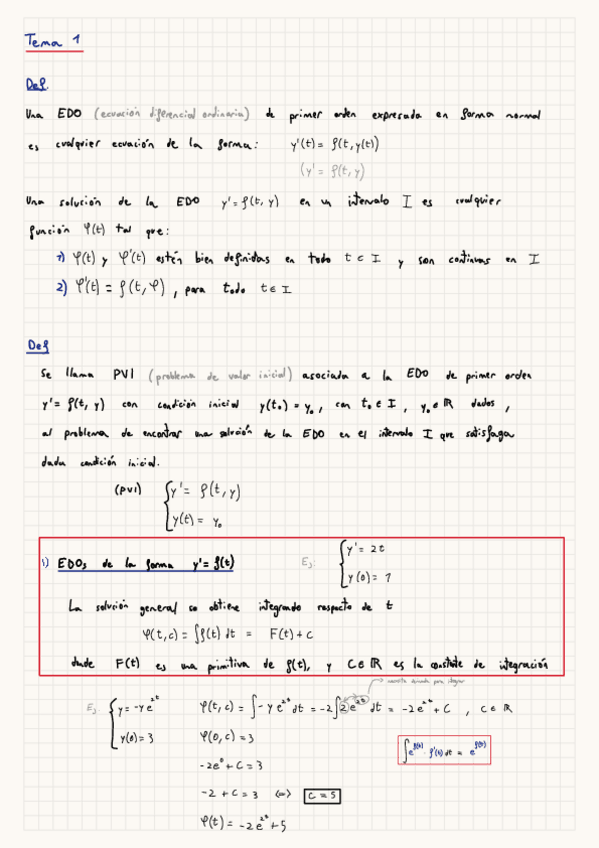 Tema 1
Def.
Una EDO (ecuación diferencial ordinaria) de primer orden expresada en forma normal
es cualquier ecuación de la forma: y'(t) = f(t, y(t))
(y' = f(t, y)
Una solución de la EDO y' = f(t, y) en un intervalo I es cualquier
función φ(t) tal que:
1) φ(t) y φ'(t) están bien definidas en todo t ∈ I y son continuas en I
2) φ'(t) = f(t, φ), para todo t ∈ I
Def
Se llama PVI (problema de valor inicial) asociada a la EDO de primer orden
y' = f(t, y) con condición inicial y(t₀) = y₀, con t₀ ∈ I, y₀ ∈ ℝ dados,
al problema de encontrar una solución de la EDO en el intervalo I que satisfaga
dada condición inicial.
(PVI) { y' = f(t, y)
y(t) = y₀
1) EDOs de la forma y' = f(t) Ej: { y' = 2t
y(0) = 1
La solución general se obtiene integrando respecto de t
φ(t, c) = ∫f(t) dt = F(t) + c
donde F(t) es una primitiva de f(t), y C ∈ ℝ es la constate de integración
Ej { y = -4e^2t φ(t, c) = ∫-4e^2t dt = -2∫2e^2t dt = -2e^2t + C , C ∈ ℝ
y(0) = 3 φ(0, c) = 3
∫e^f(t) · f'(t) dt = e^f(t)
-2e⁰ + C = 3
-2 + C = 3 ⟺ C = 5
φ(t) = -2e^2t + 5